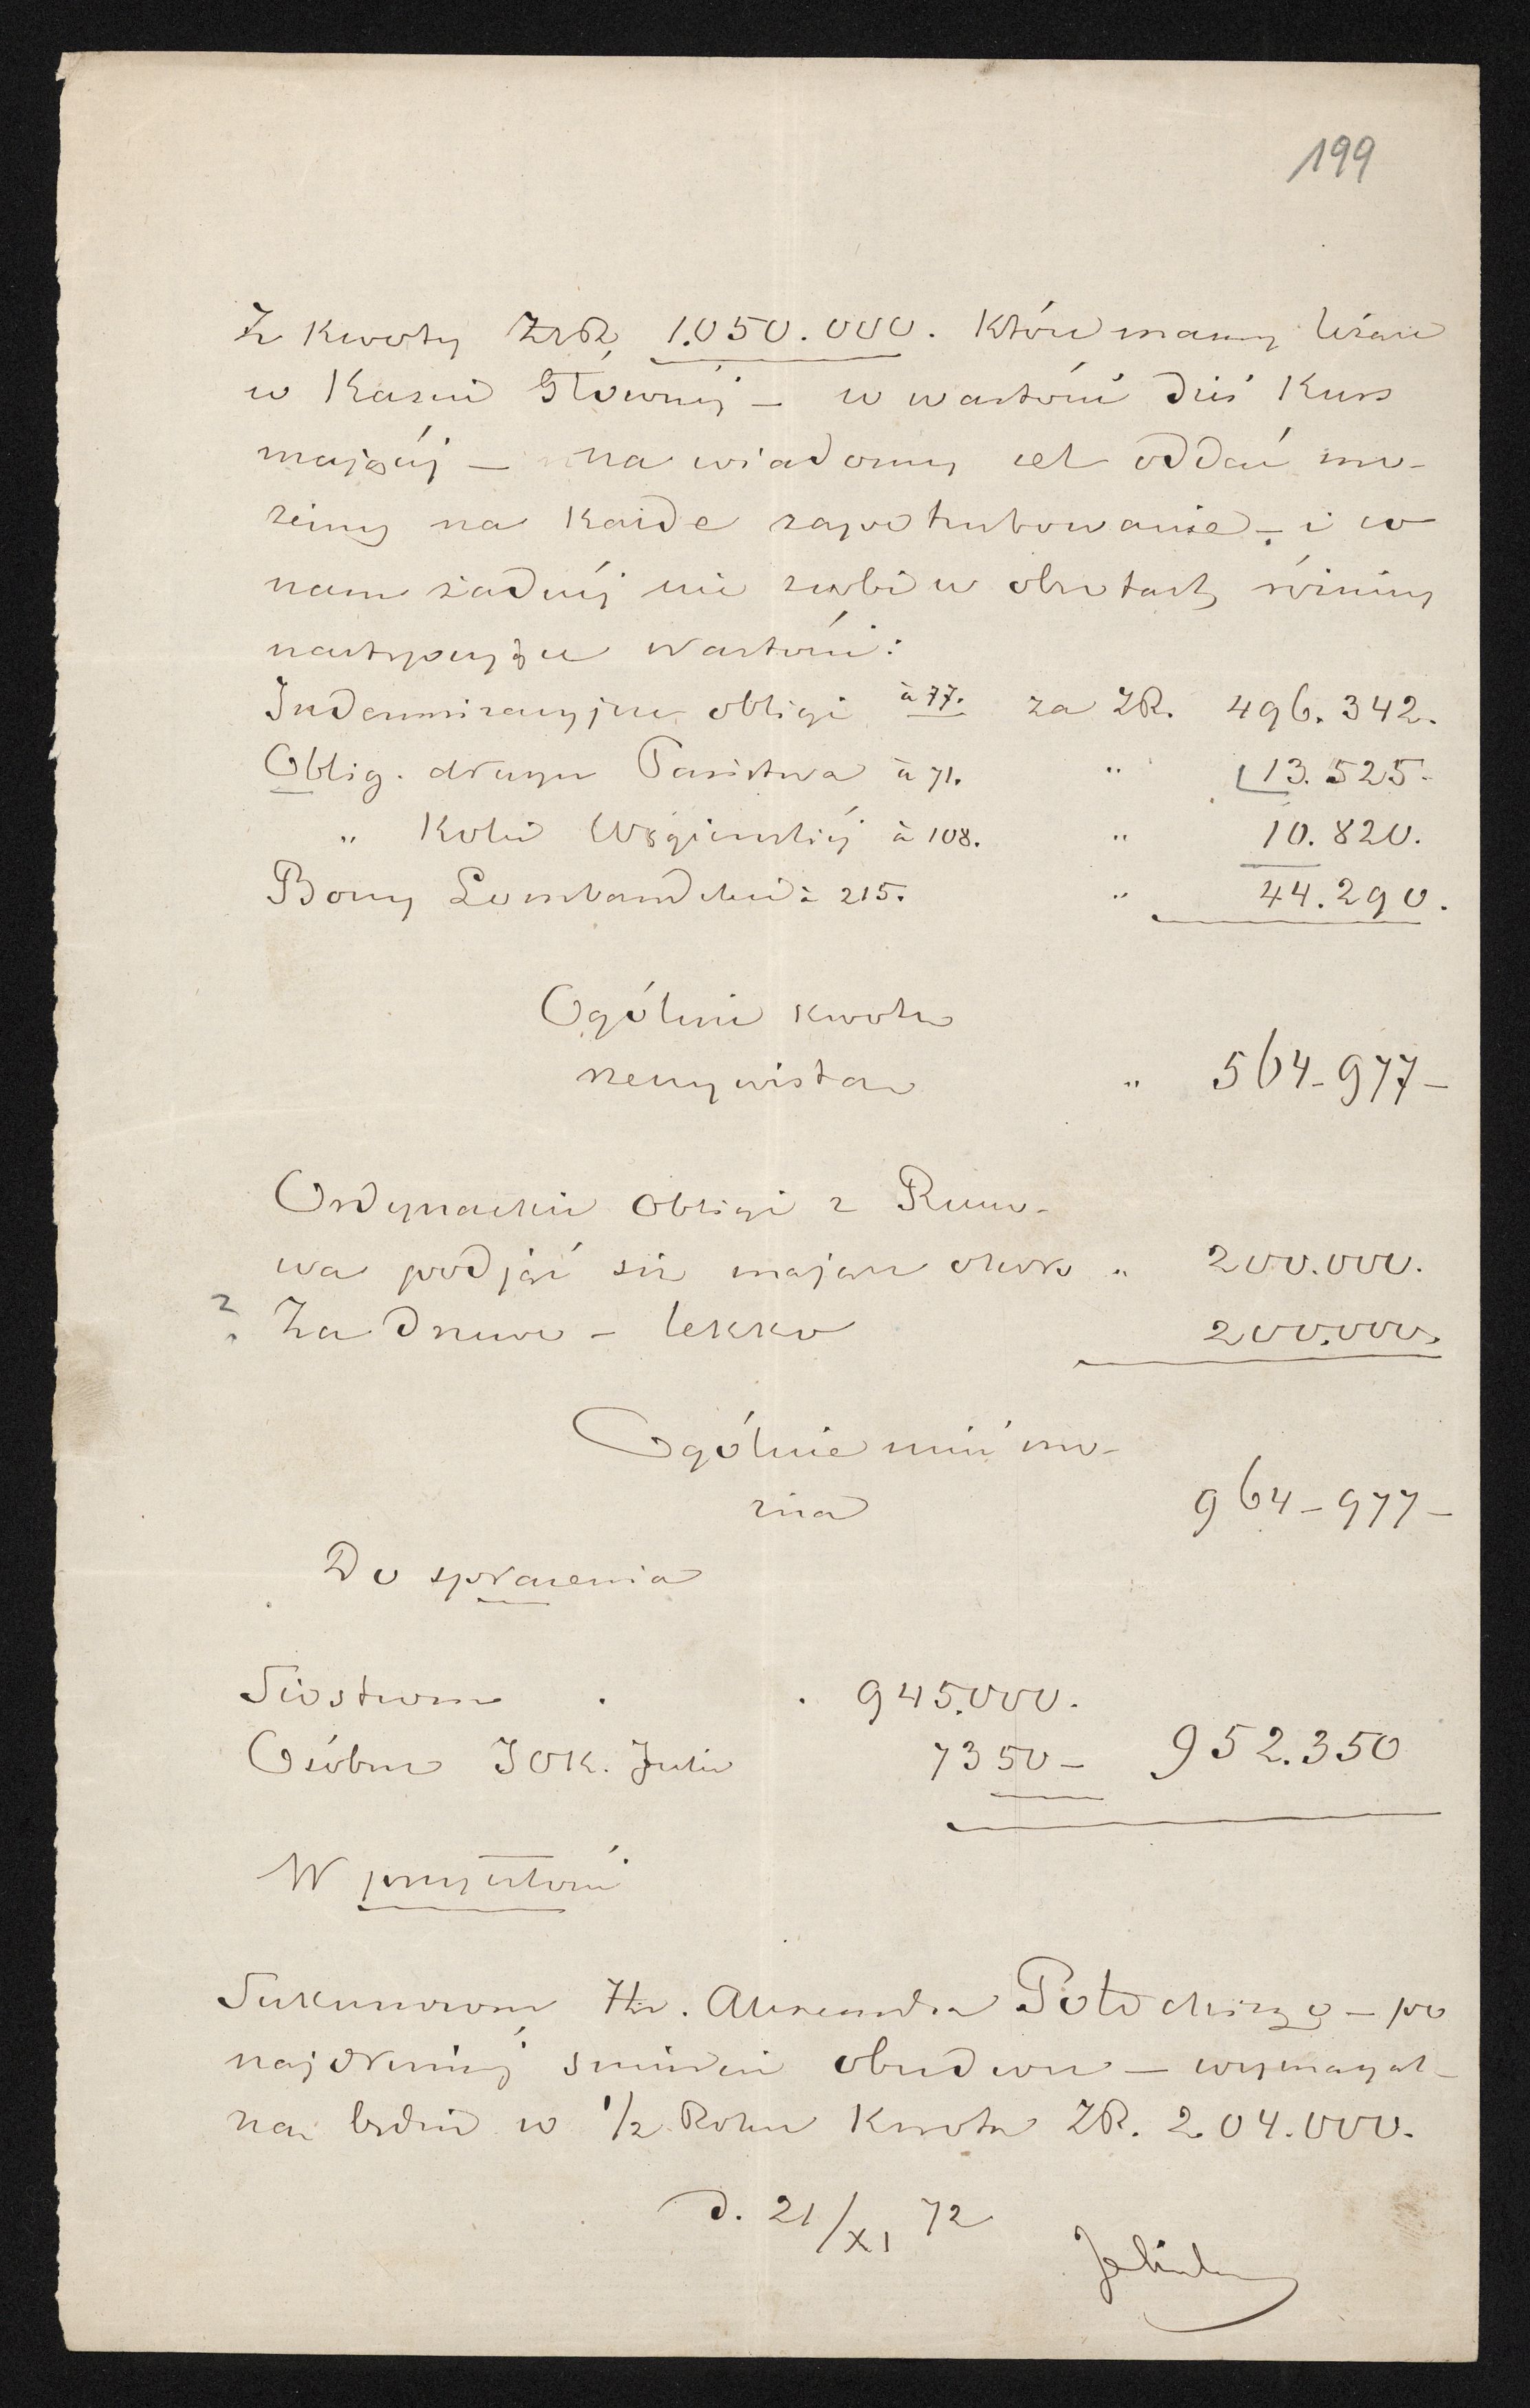 199
Z kwoty ZłR 1.050.000. którą mamy
w Kasie Głównej – w wartości dziś kurs
mającej – na wiadomy cel oddać mo-
żemy na każde zapotrzebowanie – i co
nam żadnej nie zrobi w obrotach różnicy
następujące wartości:
Indemnizacyjne obligi à 77. za ZR. 496.342.
Oblig. długu Państwa à 71. " 13.525.
" Kolei Węgierskiej à 108. " 10.820.
Bony Lombardzkie à 215. " 44.290.
Ogólnie kwota
rzeczywista " 564–977–
Ordynackie obligi z
wa podjąć się mające około " 200.000.
? Za drzewo – lekko 200.000.
Ogólnie mieć mo-
żna 964–977–
Do spłacenia
Siostrom . . 945.000.
Osóbno JOK. Julii 7350– 952.350
W przyszłości
Sukcesorom Hr. Alexandra Potockiego – po
najdłuższej śmierci obudwu – wymagal-
na będzie w ½ Roku kwota ZR. 204.000.
d. 21/XI 72